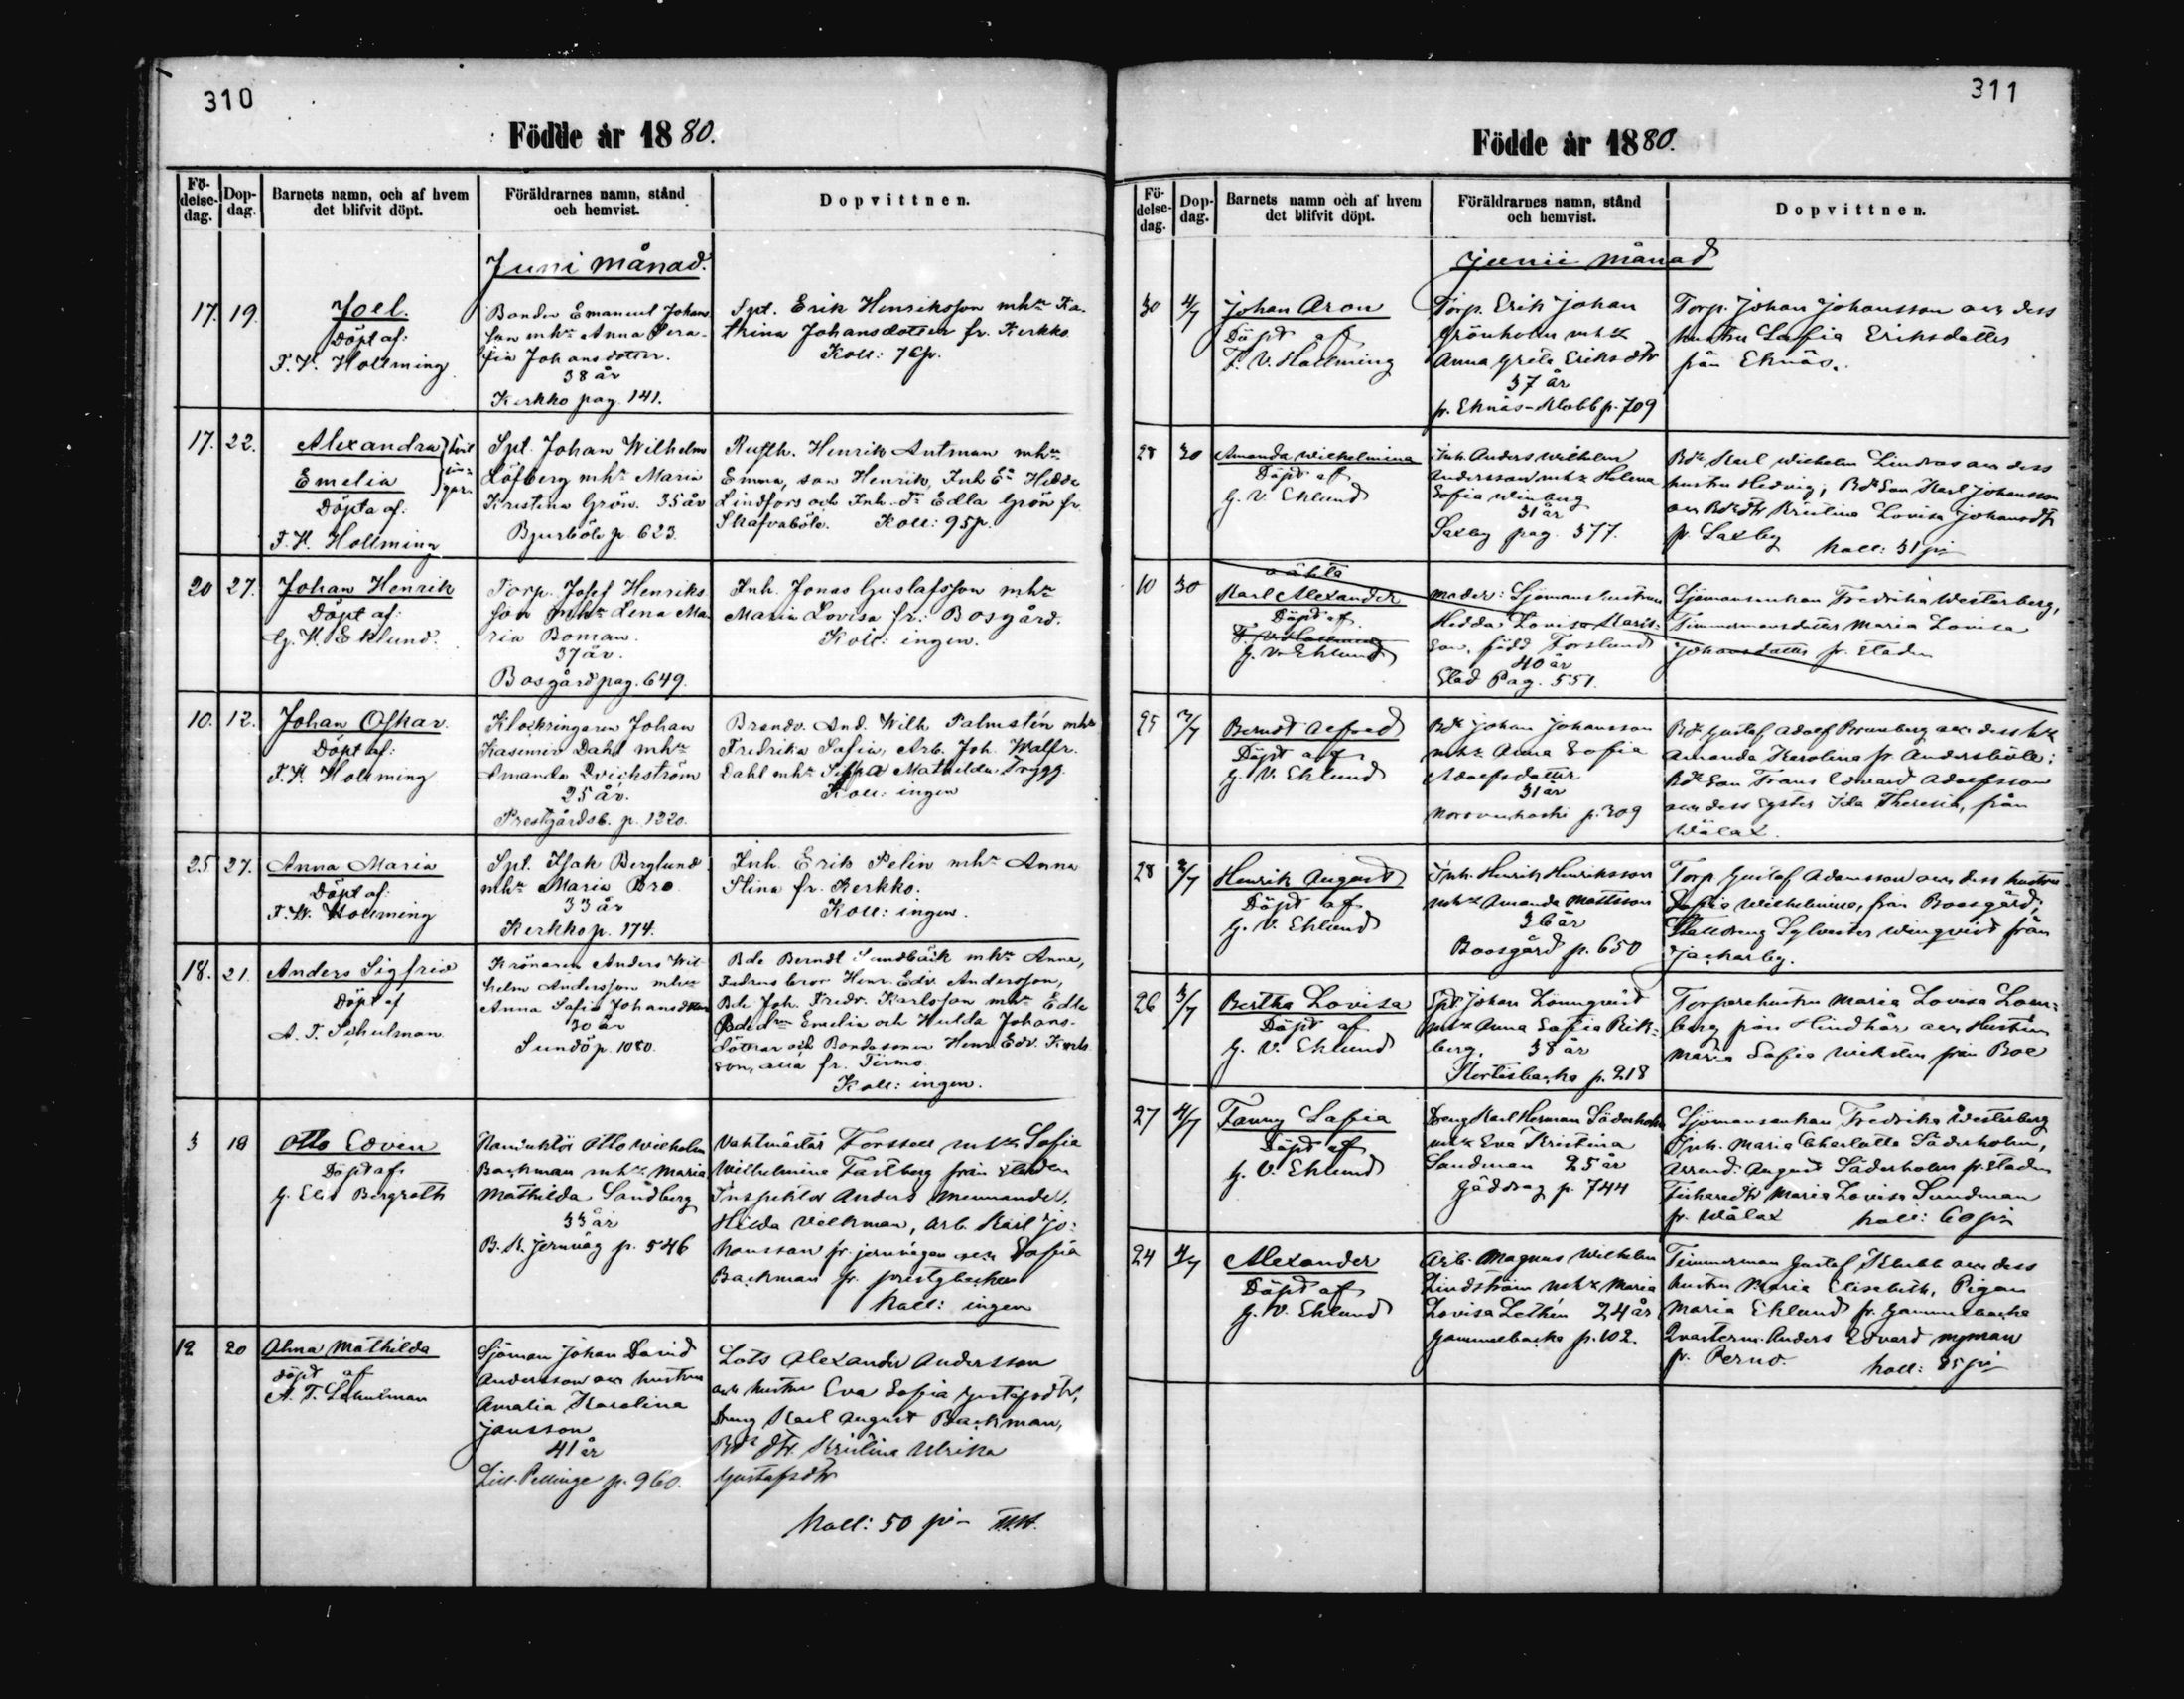 310
Födde år 1880.
Fö-
delse-
dag.
Dop-
dag.
Barnets namn, och af hvem
det blifvit döpt.
Föräldrarnes namn, stånd
och hemvist.
Dopvittnen.
Juni månad.
17. 19.
Joel.
Döpt af:
F. V. Hollming
Bonden Emanuel Johans
son mhu Anna Sera-
fia Johansdotter.
38 år
Kerkko pag. 141.
Spt. Erik Henriksson mhu Ka-
thrina Johansdotter fr. Kerkko
Koll: 76p.
17. 22.
Alexandra
Emelia
Döpta af:
F. V. Hollming
Spt. Johan Wilhelm
Löfberg mhu Maria
Kristina Grön. 35 år
Bjurböle p. 623.
Rusth. Henrik Antman mhu
Emma, son Henrik, Inh Ea Hedda
Lindfors och Inh. dr Edla Grön fr
Skafvaböle. Koll: 95p.
20 27.
Johan Henrik
Döpt af:
G. V. Eklund.
Torp. Josef Henriks
son mhu Lena Ma
ria Boman.
37 år.
Bosgård pag. 649.
Inh. Jonas Gustafsson mhu
Maria Lovisa fr. Bosgård.
Koll: ingen.
10. 12.
Johan Oskar.
Döpt af:
F. V. Hollming
Klockringaren Johan
Kasimir Dahl mhu
Amanda Qvickström
25 år.
Prestgårdsb. p. 1320.
Brandv. And. Wilh Palmstén mhu
Fredrika Sofia, Arb. Joh. Walfr.
Dahl mhu Sofia Mathilda Trygg.
Koll: ingen
25 27.
Anna Maria
Döpt af:
F. W. Hollming
Spt. Isak Berglund
mhu Maria Bro
33 år
Kerkko p. 174.
Inh. Erik Pelin mhu Anna
Stina fr. Kerkko.
Koll: ingen.
18. 21.
Anders Sigfrid
Döpt af
A. T. Schulman
Krönaren Anders Wil-
helm Andersson mhu
Anna Sofia Johansdotter
30 år
Sundö p. 1080.
Bde Berndt Sundbäck mhu Anna,
Fadrens bror Henr. Edv. Andersson,
Bde Joh. Fredr. Karlsson mhu Edla
Emelia och Hulda Johans-
döttrar och Bondesonen Henr. Edv. Karls
son, alla fr. Tirmo.
Koll: ingen.
3 19
Otto Edvin
Döpt af:
G. Elis Bergroth
Konduktör Otto Wilhelm
Backman mhu Maria
Mathilda Sandberg
33 år
B. K. jernväg p. 546
Vaktmästar Forssell mhu Sofia
Wilhelmina Fastberg från staden
Inspektor Anders Mennander,
Hilda Vilkman, arb. Karl Jo-
hansson fr. jernvägen och Sofia
Backman fr. prestgbacken
Koll: ingen
12 20
Alma Mathilda
döpt af
A. T. Schulman
Sjöman Johan David
Andersson och hustru
Amalia Karolina
Jansson
41 år
Lill Pellinge p. 960.
Lots Alexander Andersson
och hustru Eva Sofia Gustafsdtr,
Dreng Karl August Backman,
Bde dtr. Kristina Ulrika
Gustafsdtr
Koll: 50 pi
311
Födde år 1880.
Fö-
delse-
dag.
Dop-
dag.
Barnets namn och af hvem
det blifvit döpt.
Föräldrarnes namn, stånd
och hemvist.
Dopvittnen.
Junii månad
30 4/7
Johan Aron
Döpt af
F. V. Hollming
Torp. Erik Johan
Grönholm mhu
Anna Greta Eriksdtr
37 år
fr. Eknäs-Klobb p. 709
Torp. Johan Johansson och dess
hustru Sofia Eriksdotter
från Eknäs.
28 30
Amanda Wilhelmina
Döpt af
G. V. Eklund
Inh. Anders Wilhelm
Andersson mhu Helena
Sofia Winberg
31 år
Saxby pag. 577.
Bde Karl Wilhelm Lindroos och dess
hustru Hedvig; Bde son Karl Johansson
och Bde dtr Kristina Lovisa Johansdtr
fr. Saxby Koll: 31 pi
10 30
oäkta
Karl Alexander
Döpt af
F. V. Hollming
G. V. Eklund
Moder: Sjömanshustrun
Hedda Lovisa Karls-
son, född Forslund
40 år
Stad Pag. 551.
Sjömansenkan Fredrika Westerberg,
Timmermansdotter Maria Lovisa
Johansdotter fr. staden
25 3/7
Berndt Alfred
Döpt af
G. V. Eklund
Bde Johan Johansson
mhu Anna Sofia
Adolfsdotter
31 år
p. 309
Bde Gustaf Adolf Brunberg och dess hu
Amanda Karolina fr. Andersböle;
Bde son Frans Edvard Adolfsson
och dess syster Ida Theresia, från
Wålax.
28 3/7
Henrik August
Döpt af
G. V. Eklund
Inh. Henrik Henriksson
mhu Amanda Mattsson
36 år
Boosgård p. 650
Torp Gustaf Adamsson och dess hustru
Sofia Wilhelmina, från Boosgård;
Stalldreng Sylvester Winqvist från
Jackarby.
26 3/7
Bertha Lovisa
Döpt af
G. V. Eklund
Spt Johan Lönnqvist
mhu Anna Sofia Rik-
berg, 38 år
p. 218
Torparehustru Maria Lovisa Lönn-
berg från Hindhår och Hustrun
Maria Sofia Wiksten från Boe
27 4/7
Fanny Sofia
Döpt af
G. V. Eklund
Dreng Karl Herman Söderholm
mhu Eva Kristina
Sandman 25 år
Gäddrag p. 744
Sjömansenkan Fredrika Westerberg
Inh. Maria Charlotta Söderholm,
Arrend. August Söderholm fr. staden
Fiskaredtr Maria Lovisa Sundman
fr. Wålax Koll: 60 pi
24 4/7
Alexander
Döpt af
G. V. Eklund
Arb. Magnus Wilhelm
Lindström mhu Maria
Lovisa Lethén 24 år
Gammelbacka p. 102.
Timmerman Gustaf Klubb och dess
hustru Maria Elisabeth, Pigan
Maria Eklund fr. Gammelbacka
Qvarterm. Anders Edvard Nyman
fr. Perno. Koll: 85 pi